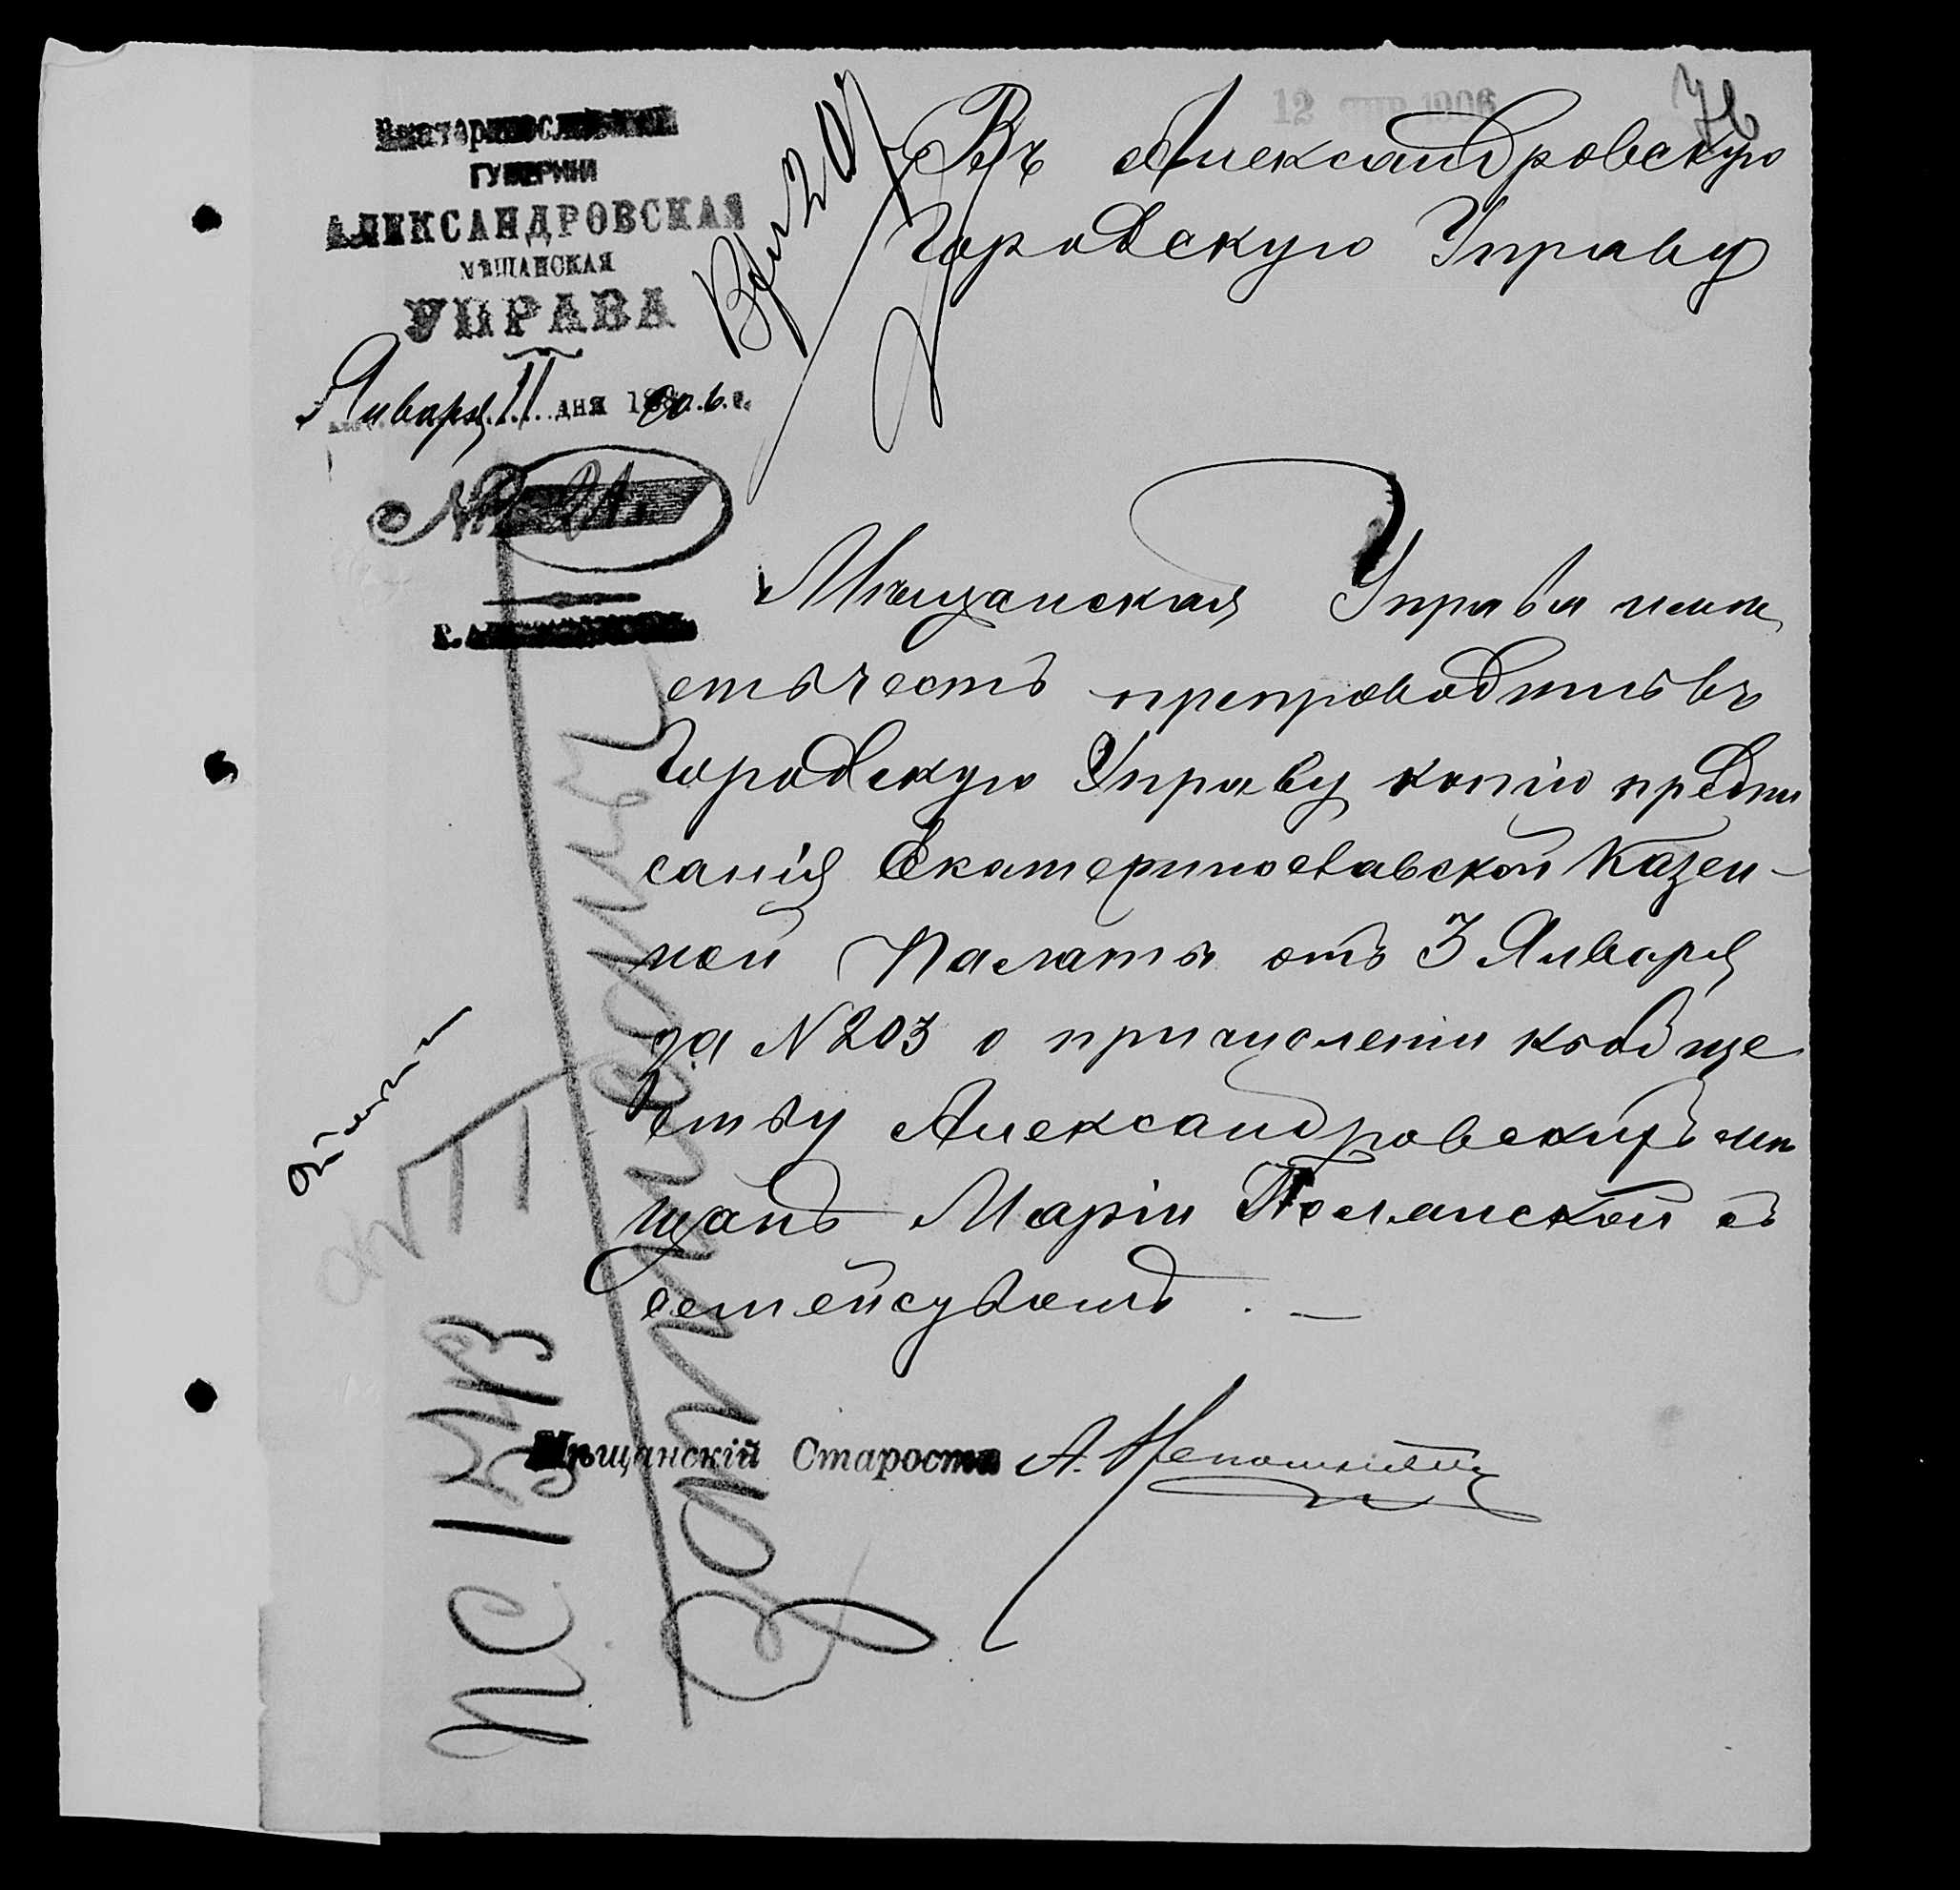 12 ЯНВ 1906
76
Екатеринославской
ГУБЕРНИИ
АЛЕКСАНДРОВСКАЯ
МѢЩАНСКАЯ
УПРАВА
Января 11 дня 1906 г.
№ 21.
Въ Александровскую
Городскую Управу
Мѣщанская Управа имѣ
етъ честь препроводить въ
Городскую Управу копію предпи
санія Екатеринославской Казен-
ной Палаты отъ 3 Января
за N 203 о причисленіи къ обще
ству Александровскихъ мѣ
щанъ Маріи Полянской съ
семействомъ. —
Мѣщанскій Староста А.